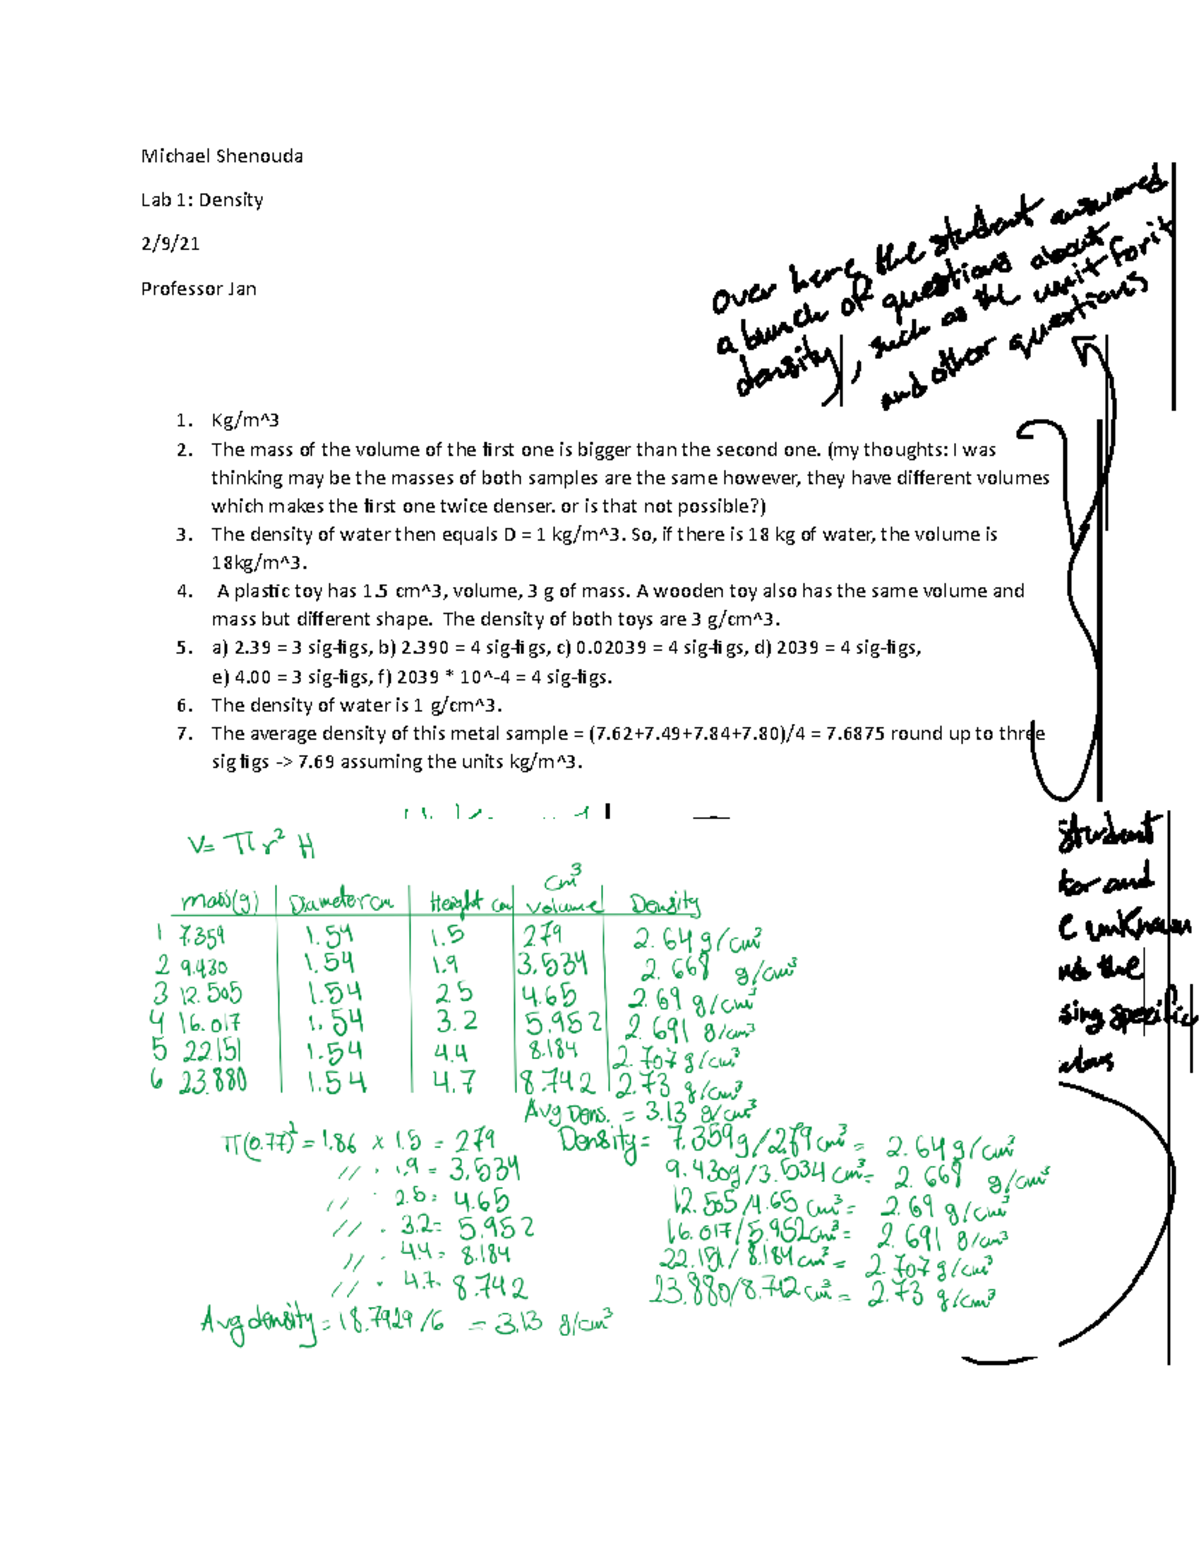 Michael Shenouda
Lab 1: Density
2/9/21
Professor Jan
over here the student answered
a bunch of questions about
density, such as the unit for it
and other questions
1. Kg/m^3
2. The mass of the volume of the first one is bigger than the second one. (my thoughts: I was
thinking may be the masses of both samples are the same however, they have different volumes
which makes the first one twice denser. or is that not possible?)
3. The density of water then equals D = 1 kg/m^3. So, if there is 18 kg of water, the volume is
18kg/m^3.
4. A plastic toy has 1.5 cm^3, volume, 3 g of mass. A wooden toy also has the same volume and
mass but different shape. The density of both toys are 3 g/cm^3.
5. a) 2.39 = 3 sig-figs, b) 2.390 = 4 sig-figs, c) 0.02039 = 4 sig-figs, d) 2039 = 4 sig-figs,
e) 4.00 = 3 sig-figs, f) 2039 * 10^-4 = 4 sig-figs.
6. The density of water is 1 g/cm^3.
7. The average density of this metal sample = (7.62+7.49+7.84+7.80)/4 = 7.6875 round up to three
sigfigs -> 7.69 assuming the units kg/m^3.
V= πr² H
mass(g) Diameter cm Height cm cm³ Volume Density
1 7.359 1.54 1.5 279 2.64 g/cm³
2 9.430 1.54 1.9 3.534 2.668 g/cm³
3 12.505 1.54 2.5 4.65 2.69 g/cm³
4 16.017 1.54 3.2 5.952 2.691 g/cm³
5 22.151 1.54 4.4 8.184 2.707 g/cm³
6 23.880 1.54 4.7 8.742 2.73 g/cm³
Avg Dens. = 3.13 g/cm³
π(0.77)² = 1.86 x 1.5 = 279
// · 1.9 = 3.534
// · 2.5 = 4.65
// · 3.2 = 5.952
// · 4.4 = 8.184
// · 4.7 · 8.742
Avg density = 18.7929/6 = 3.13 g/cm³
Density = 7.359g/2.79cm³ = 2.64 g/cm³
9.430g/3.534 cm³ = 2.668 g/cm³
12.505/4.65 cm³ = 2.69 g/cm³
16.017/5.952cm³ = 2.691 g/cm³
22.151/8.184cm³ = 2.707 g/cm³
23.880/8.742 cm³ = 2.73 g/cm³
student
tor and
unknown
the
sing specific